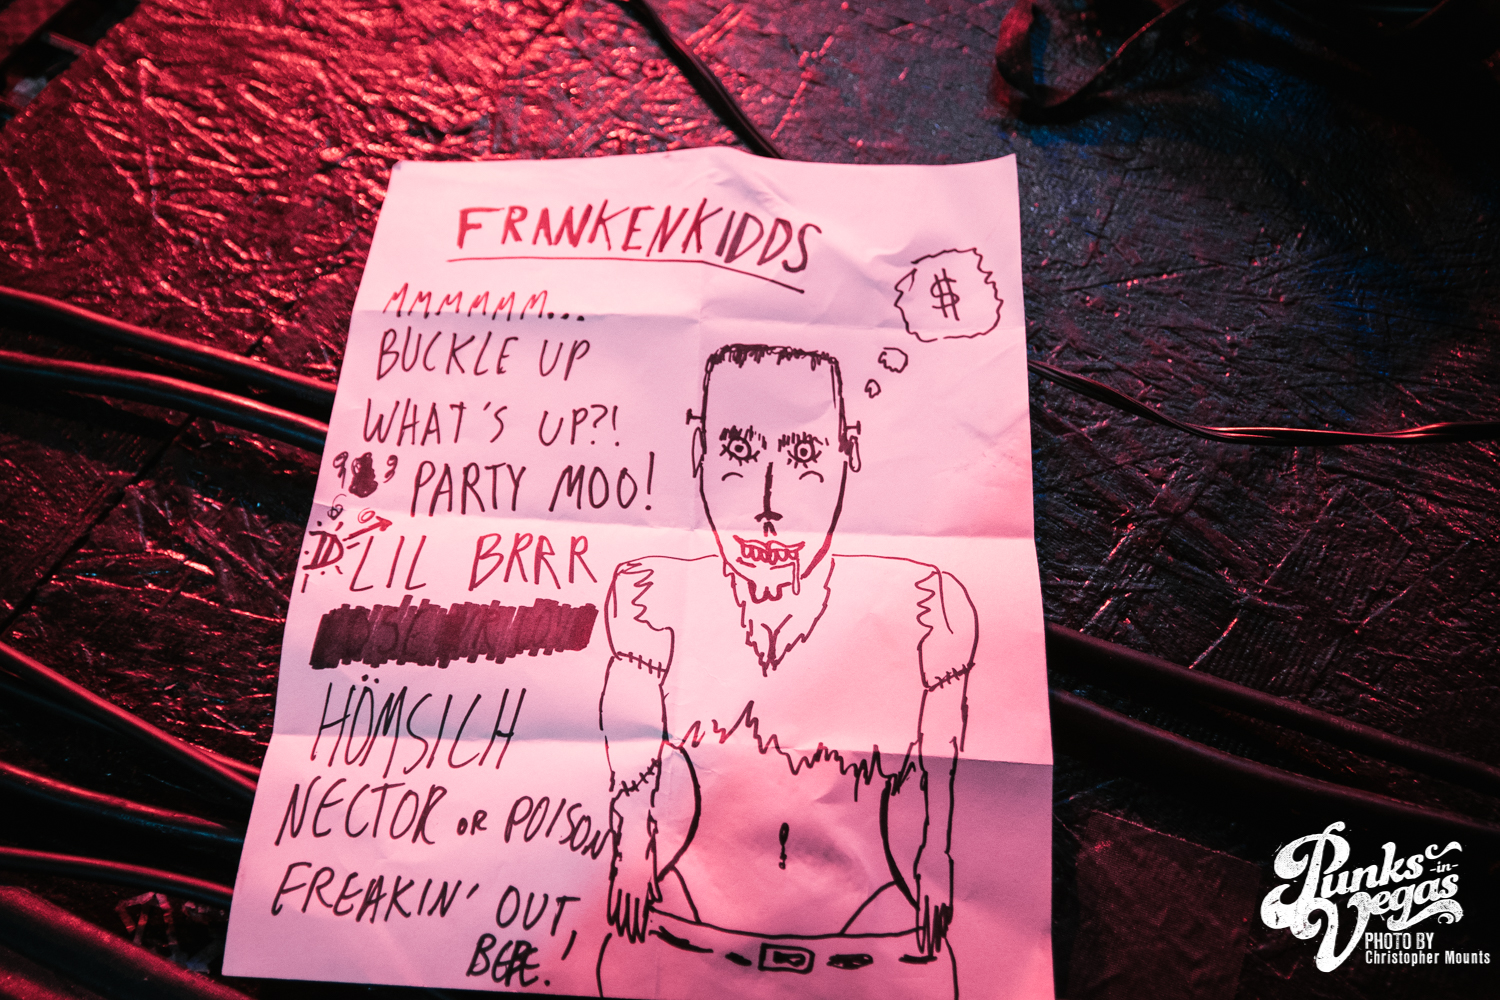 FRANKENKIDDS
$
MMMMMM...
BUCKLE UP
WHAT'S UP?!
PARTY MOO!
LIL BRRR
HÖMSICH
NECTOR OR POISON
FREAKIN' OUT,
BEPE.'
Punks
-in-
Vegas
PHOTO BY
Christopher Mounts